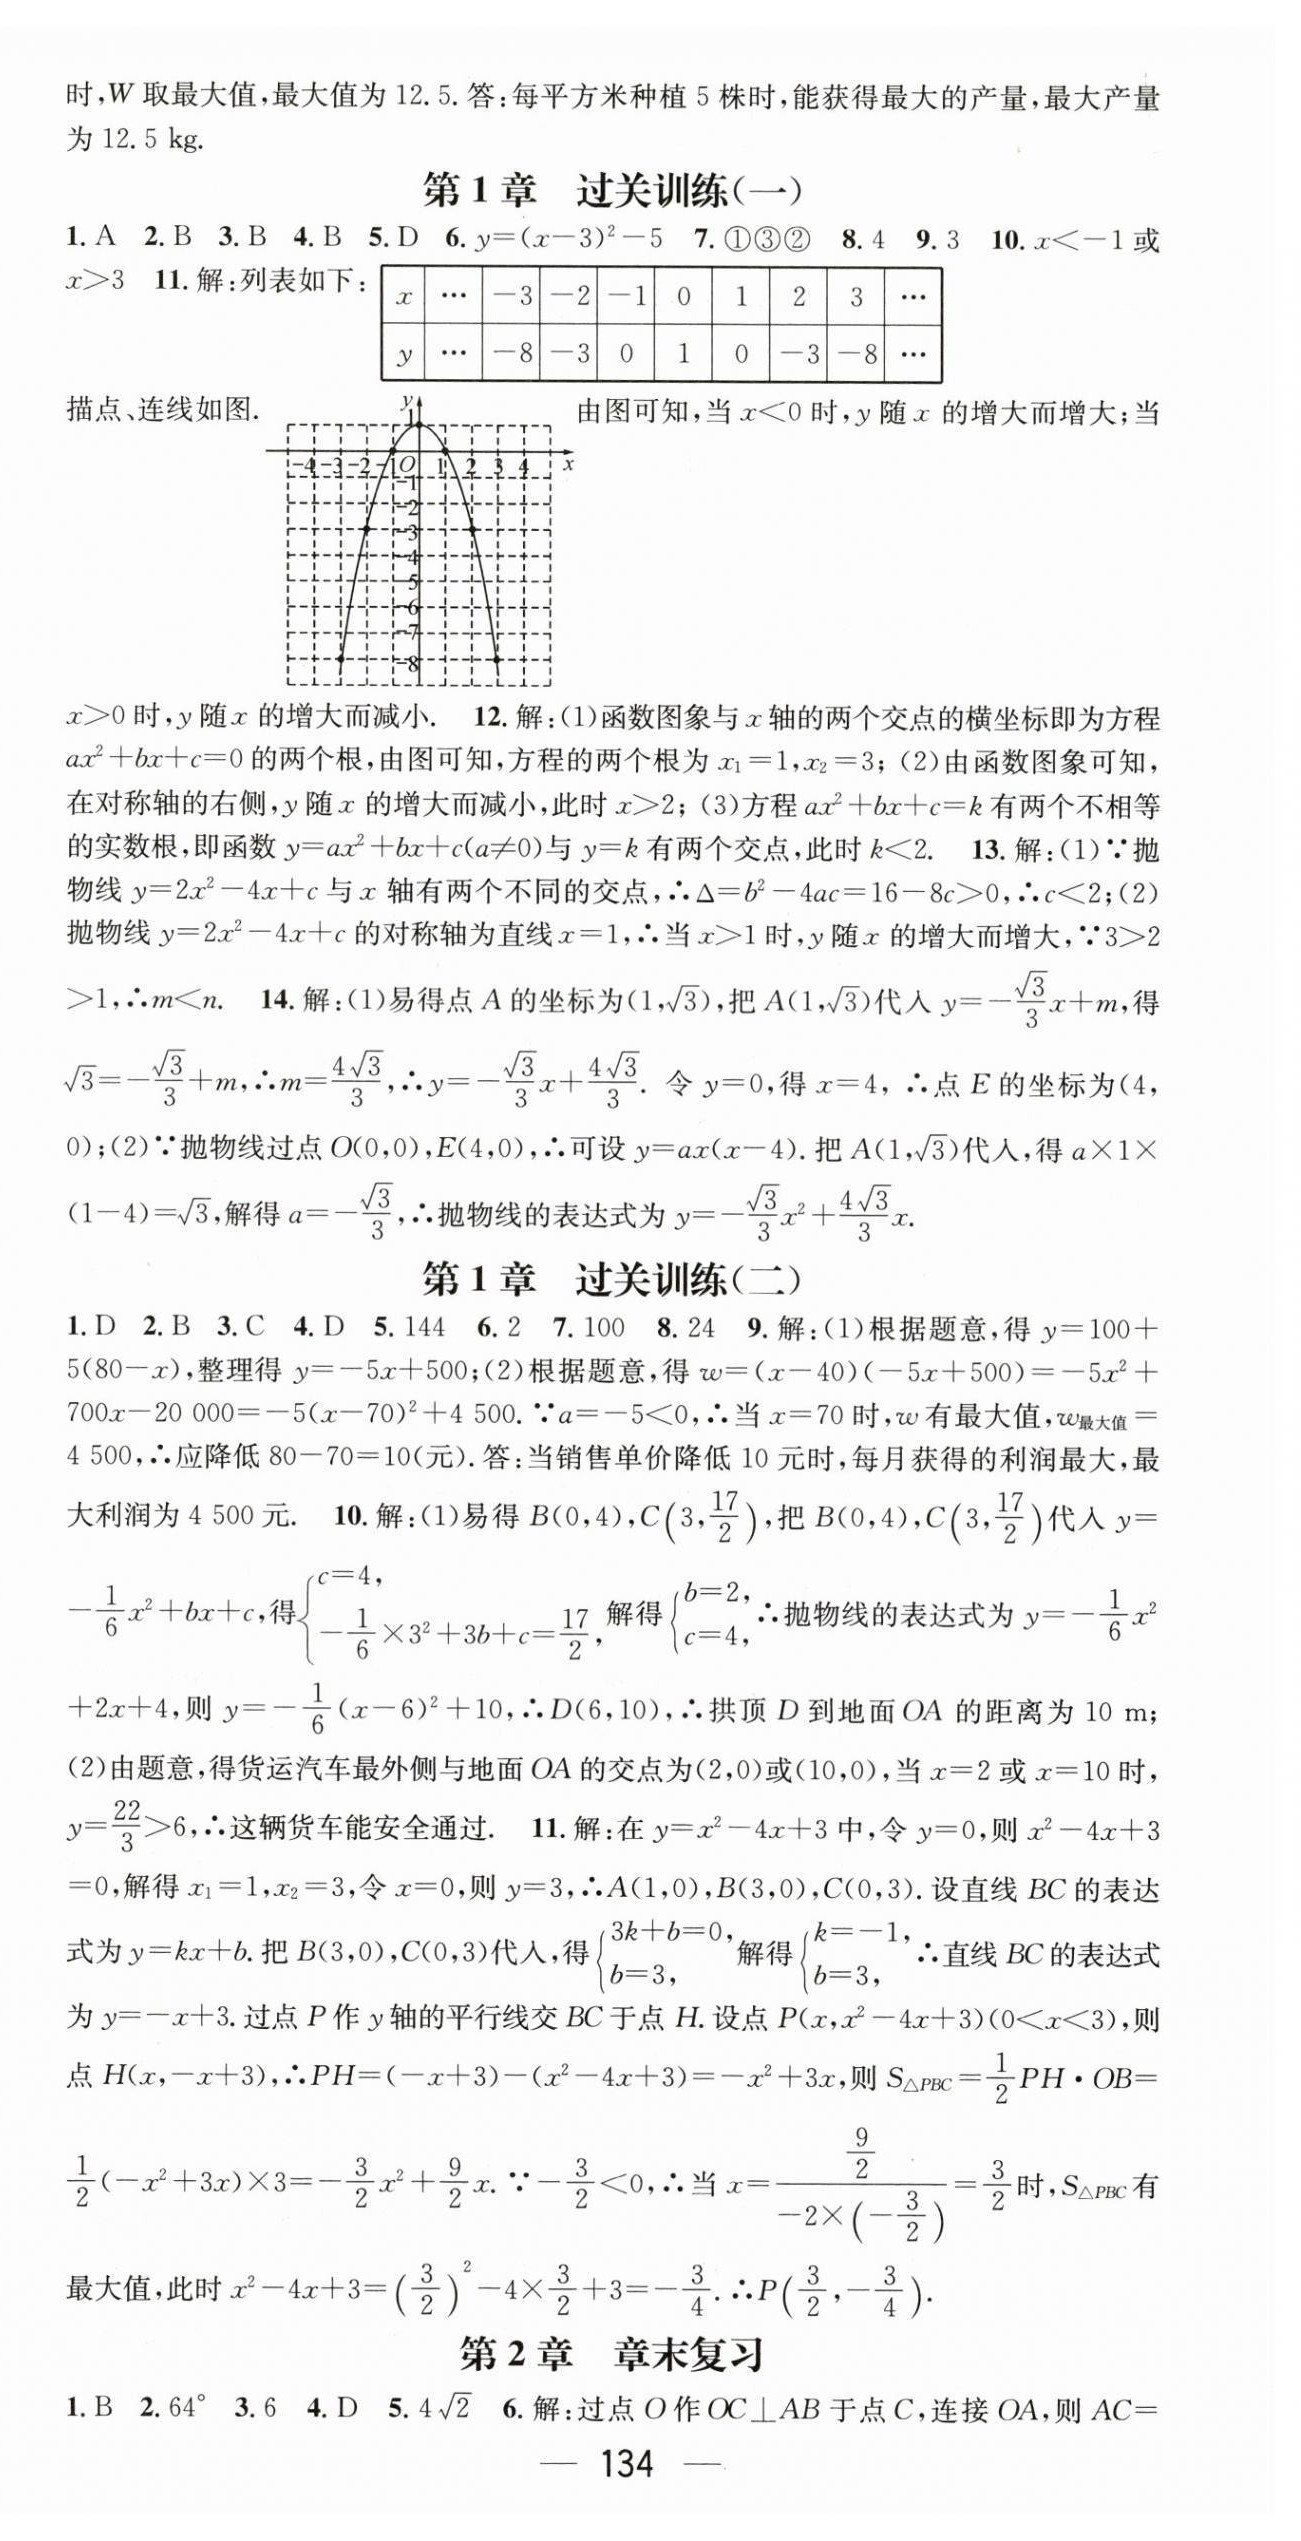 时,W取最大值,最大值为12.5.答:每平方米种植5株时,能获得最大的产量,最大产量
为12.5 kg.
第1章 过关训练(一)
1. A 2. B 3. B 4. B 5. D 6. y=(x−3)²−5 7. ①③② 8. 4 9. 3 10. x<−1或
x>3 11. 解:列表如下:
x … −3 −2 −1 0 1 2 3 …
y … −8 −3 0 1 0 −3 −8 …
描点、连线如图.
y
1
−4 −3 −2 −1 O 1 2 3 4 x
−1
−2
−3
−4
−5
−6
−7
−8
由图可知,当x<0时,y随x的增大而增大;当
x>0时,y随x的增大而减小. 12. 解:(1)函数图象与x轴的两个交点的横坐标即为方程
ax²+bx+c=0的两个根,由图可知,方程的两个根为x₁=1,x₂=3;(2)由函数图象可知,
在对称轴的右侧,y随x的增大而减小,此时x>2;(3)方程ax²+bx+c=k有两个不相等
的实数根,即函数y=ax²+bx+c(a≠0)与y=k有两个交点,此时k<2. 13. 解:(1)∵抛
物线y=2x²−4x+c与x轴有两个不同的交点,∴Δ=b²−4ac=16−8c>0,∴c<2;(2)
抛物线y=2x²−4x+c的对称轴为直线x=1,∴当x>1时,y随x的增大而增大,∵3>2
>1,∴m<n. 14. 解:(1)易得点A的坐标为(1,√3),把A(1,√3)代入y=−√3/3x+m,得
√3=−√3/3+m,∴m=4√3/3,∴y=−√3/3x+4√3/3. 令y=0,得x=4,∴点E的坐标为(4,
0);(2)∵抛物线过点O(0,0),E(4,0),∴可设y=ax(x−4).把A(1,√3)代入,得a×1×
(1−4)=√3,解得a=−√3/3,∴抛物线的表达式为y=−√3/3x²+4√3/3x.
第1章 过关训练(二)
1. D 2. B 3. C 4. D 5. 144 6. 2 7. 100 8. 24 9. 解:(1)根据题意,得y=100+
5(80−x),整理得y=−5x+500;(2)根据题意,得w=(x−40)(−5x+500)=−5x²+
700x−20 000=−5(x−70)²+4 500.∵a=−5<0,∴当x=70时,w有最大值,w最大值=
4 500,∴应降低80−70=10(元).答:当销售单价降低10元时,每月获得的利润最大,最
大利润为4 500元. 10. 解:(1)易得B(0,4),C(3,17/2),把B(0,4),C(3,17/2)代入y=
−1/6x²+bx+c,得{c=4, −1/6×3²+3b+c=17/2, 解得{b=2, c=4, ∴抛物线的表达式为y=−1/6x²
+2x+4,则y=−1/6(x−6)²+10,∴D(6,10),∴拱顶D到地面OA的距离为10 m;
(2)由题意,得货运汽车最外侧与地面OA的交点为(2,0)或(10,0),当x=2或x=10时,
y=22/3>6,∴这辆货车能安全通过. 11. 解:在y=x²−4x+3中,令y=0,则x²−4x+3
=0,解得x₁=1,x₂=3,令x=0,则y=3,∴A(1,0),B(3,0),C(0,3).设直线BC的表达
式为y=kx+b.把B(3,0),C(0,3)代入,得{3k+b=0, b=3, 解得{k=−1, b=3, ∴直线BC的表达式
为y=−x+3.过点P作y轴的平行线交BC于点H.设点P(x,x²−4x+3)(0<x<3),则
点H(x,−x+3),∴PH=(−x+3)−(x²−4x+3)=−x²+3x,则S△PBC=1/2PH·OB=
1/2(−x²+3x)×3=−3/2x²+9/2x.∵−3/2<0,∴当x=(9/2)/(−2×(−3/2))=3/2时,S△PBC有
最大值,此时x²−4x+3=(3/2)²−4×3/2+3=−3/4.∴P(3/2,−3/4).
第2章 章末复习
1. B 2. 64° 3. 6 4. D 5. 4√2 6. 解:过点O作OC⊥AB于点C,连接OA,则AC=
— 134 —